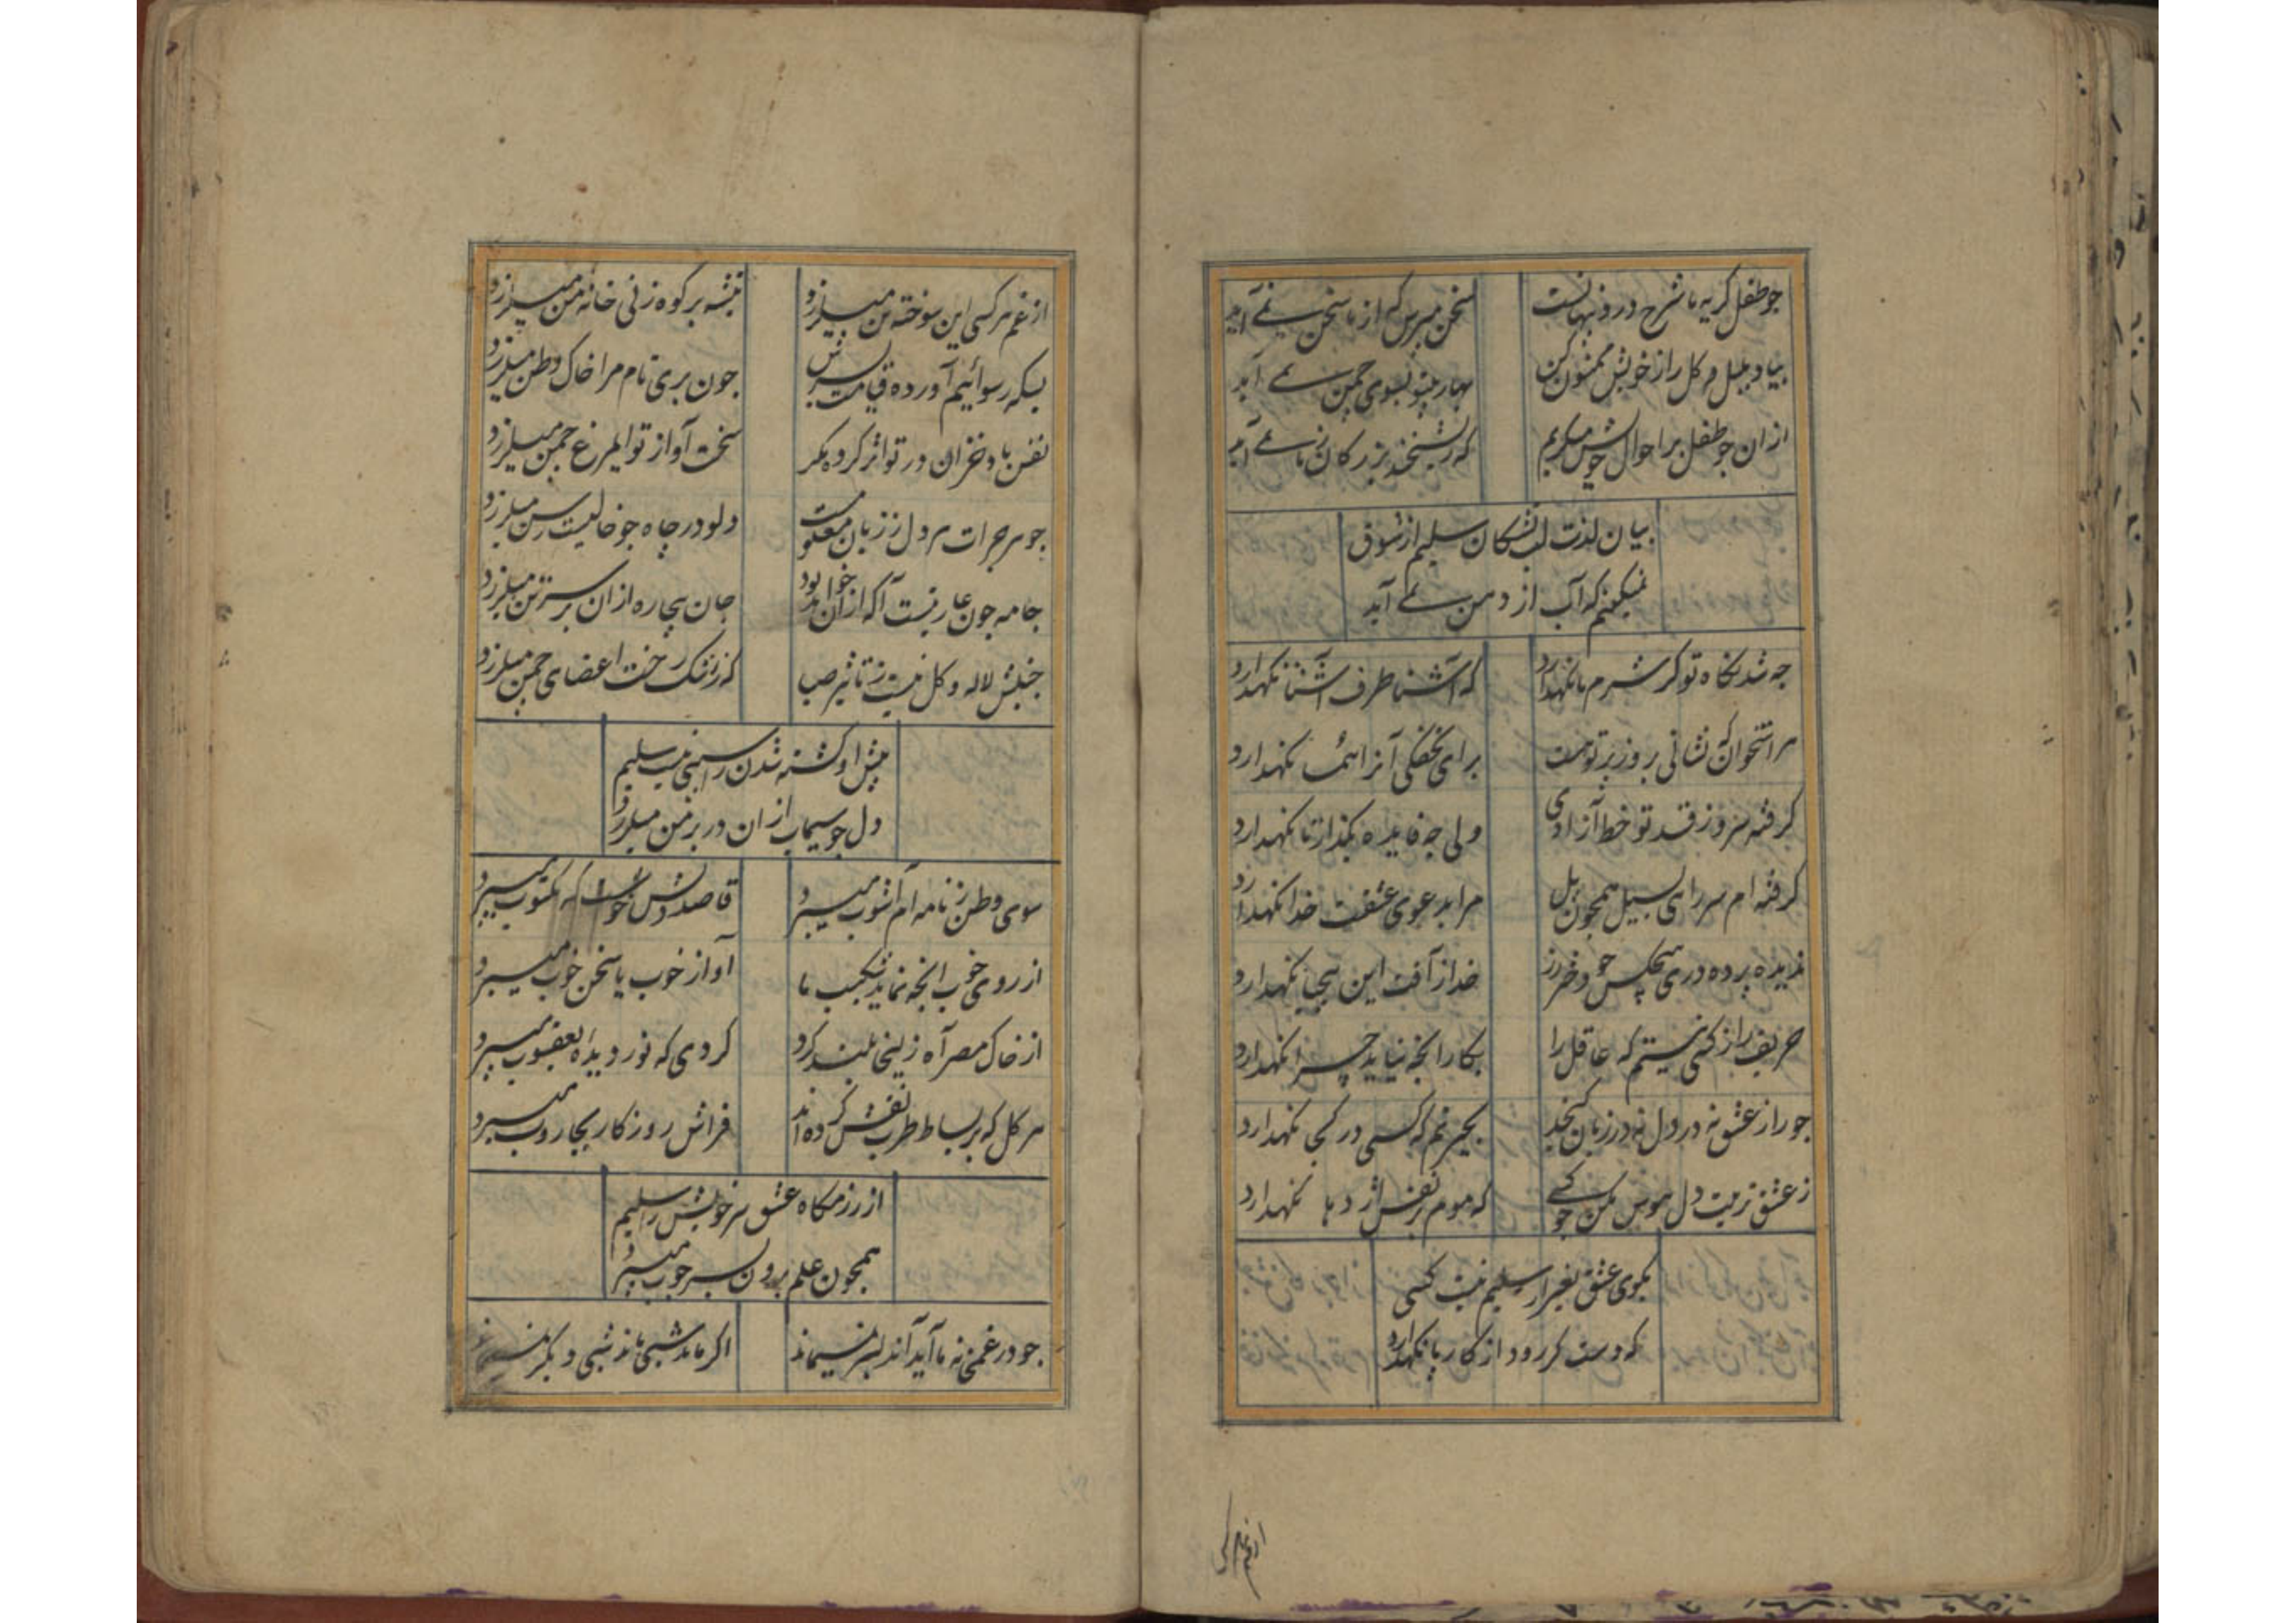 چو طفل گریه ما شرح درد پنهانست سخن مپرس که از ما سخن نمے آید
بیا و بلبل و کل را ز خویش ممنون کن بهار بیتو بسوی چمن نمے آید
ازان چو طفل بر احوال خویش میکریم که ریشخند بزرکان ز ما نمے آید
بیان لذت لب تشنکان سلیم از شوق
نمیکنم که آب از دهن نمے آید
چه شد نکاه تو کر شرم ما نکهدارد که آشنا طرف آشنا نکهدارد
هر استخوان که نشانی بروز تیر تو هست برای تحفکی آنرا هما نکهدارد
کرفته سرو ز قد تو خط آزادی ولی چه فایده بکذار تا نکهدارد
کرفته ام سر رای سیل همچون پل مرا بدعوی عشقت خدا نکهدارد
ندیده پرده دری هیچکس چو دختر رز خدا ز آفت این بیحیا نکهدارد
حریف راز کسی نیستم که عاقل را بکار آنچه نیاید چرا نکهدارد
چو راز عشق نه در دل نه در زبان کنجد بحیرتم که کسی در کجا نکهدارد
ز عشق تربیت دل هوس مکن چو کسے که موم بر نفس اژدها نکهدارد
بکوی عشق بغیر از سلیم نیست کسی
که دست کر رود از کار پا نکهدارد
از غم هر کسی
از غم هر کسی این سوخته من میلرزد تیشه بر کوه زنی خانه من میلرزد
بسکه رسوائیم آورده قیامت بسرش چون بری نام مرا خاک وطن میلرزد
نفس باد خزان در تو اثر کرده مکر سخت آواز تو ای مرغ چمن میلرزد
جوهر جرات هر دل ز زبان معلومست دلو در چاه چو خالیست رسن میلرزد
جامه چون عاریتست آکه ازان خواهد بود جان بیچاره ازان بر سر تن میلرزد
جنبش لاله و کل نیست ز تاثیر صبا که ز رشک رخت اعضای چمن میلرزد
پیش او کشته شدن را سببی نیست سلیم
دل چو سیماب ازان در بر من میلرزد
سوی وطن ز نامه ام آشوب میبرد قاصد دلش خوشست که مکتوب میبرد
از روی خوب آنچه نماید شکیب ما آواز خوب یا سخن خوب میبرد
از خاک مصر آه زلیخا بلند کرد کردی که نور دیده یعقوب میبرد
هر کل که بر بساط طرب نقش کرده اند فراش روزکار بجاروب میبرد
از رزمکاه عشق سر خویش را سلیم
همچون علم برون بسر چوب میبرد
چو در غمخانه ما آید آن دلبر نمیماند اکر ماند شبی ماند شبی دیکر نمیماند